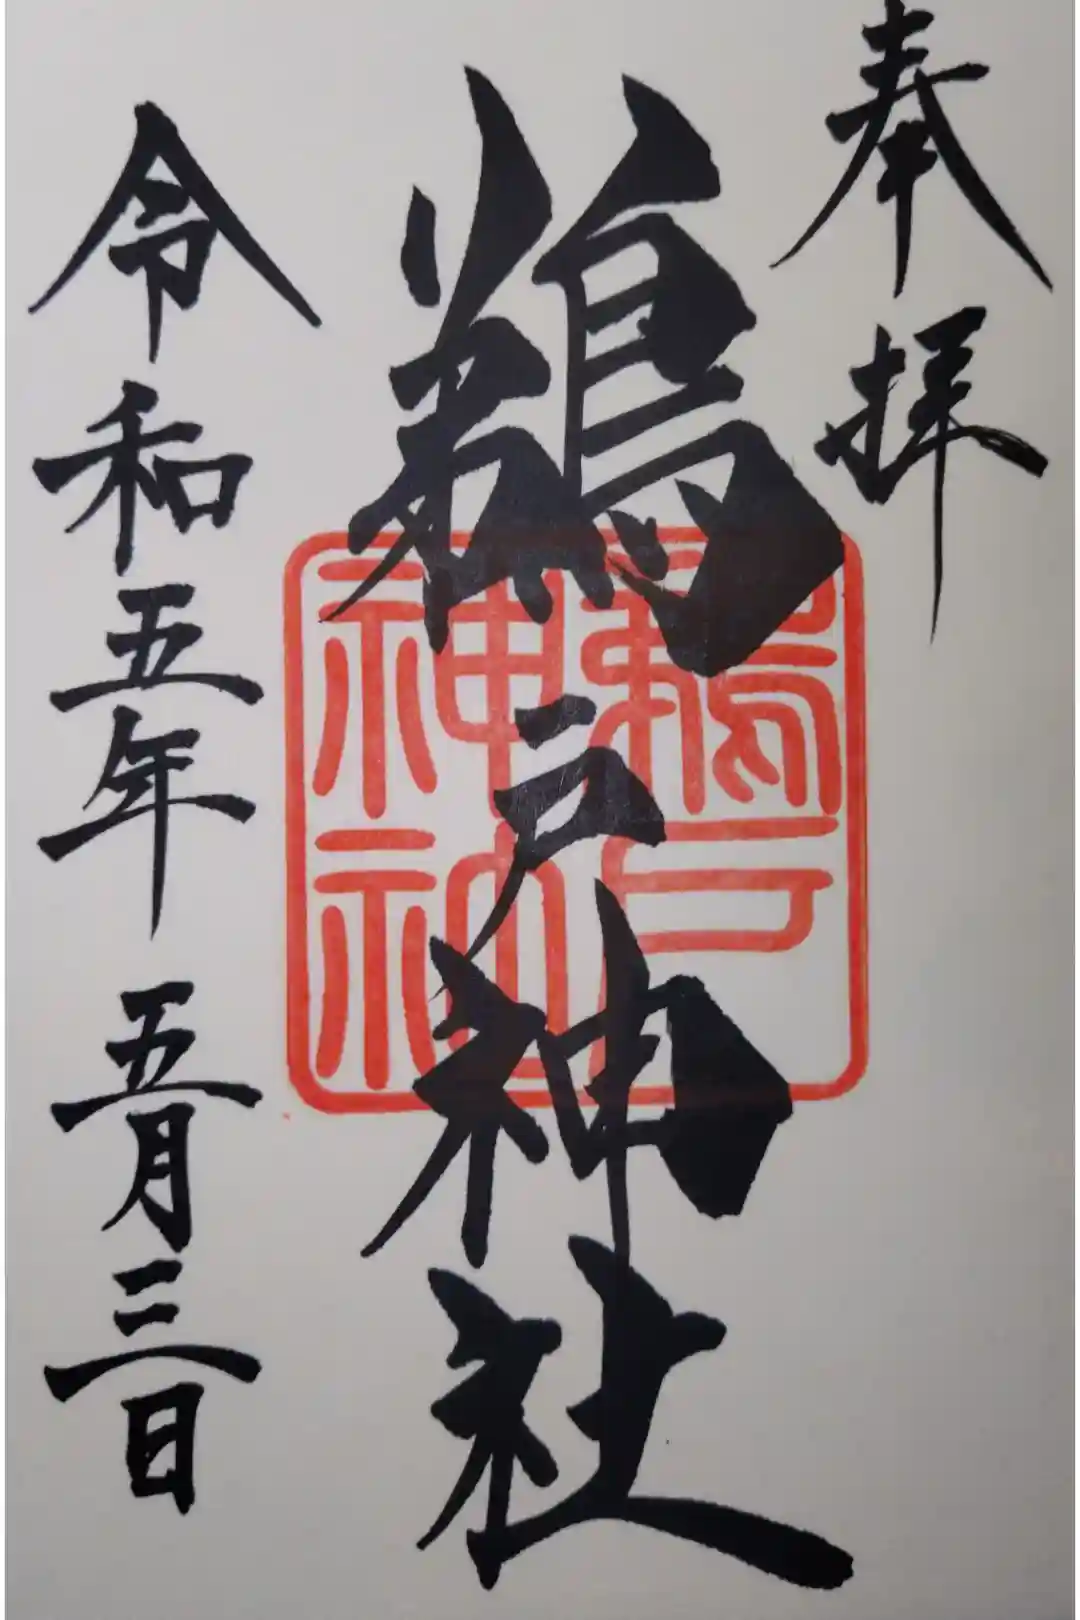 奉拝
鵜戸神社
令和五年 五月三日
鵜戸
神社